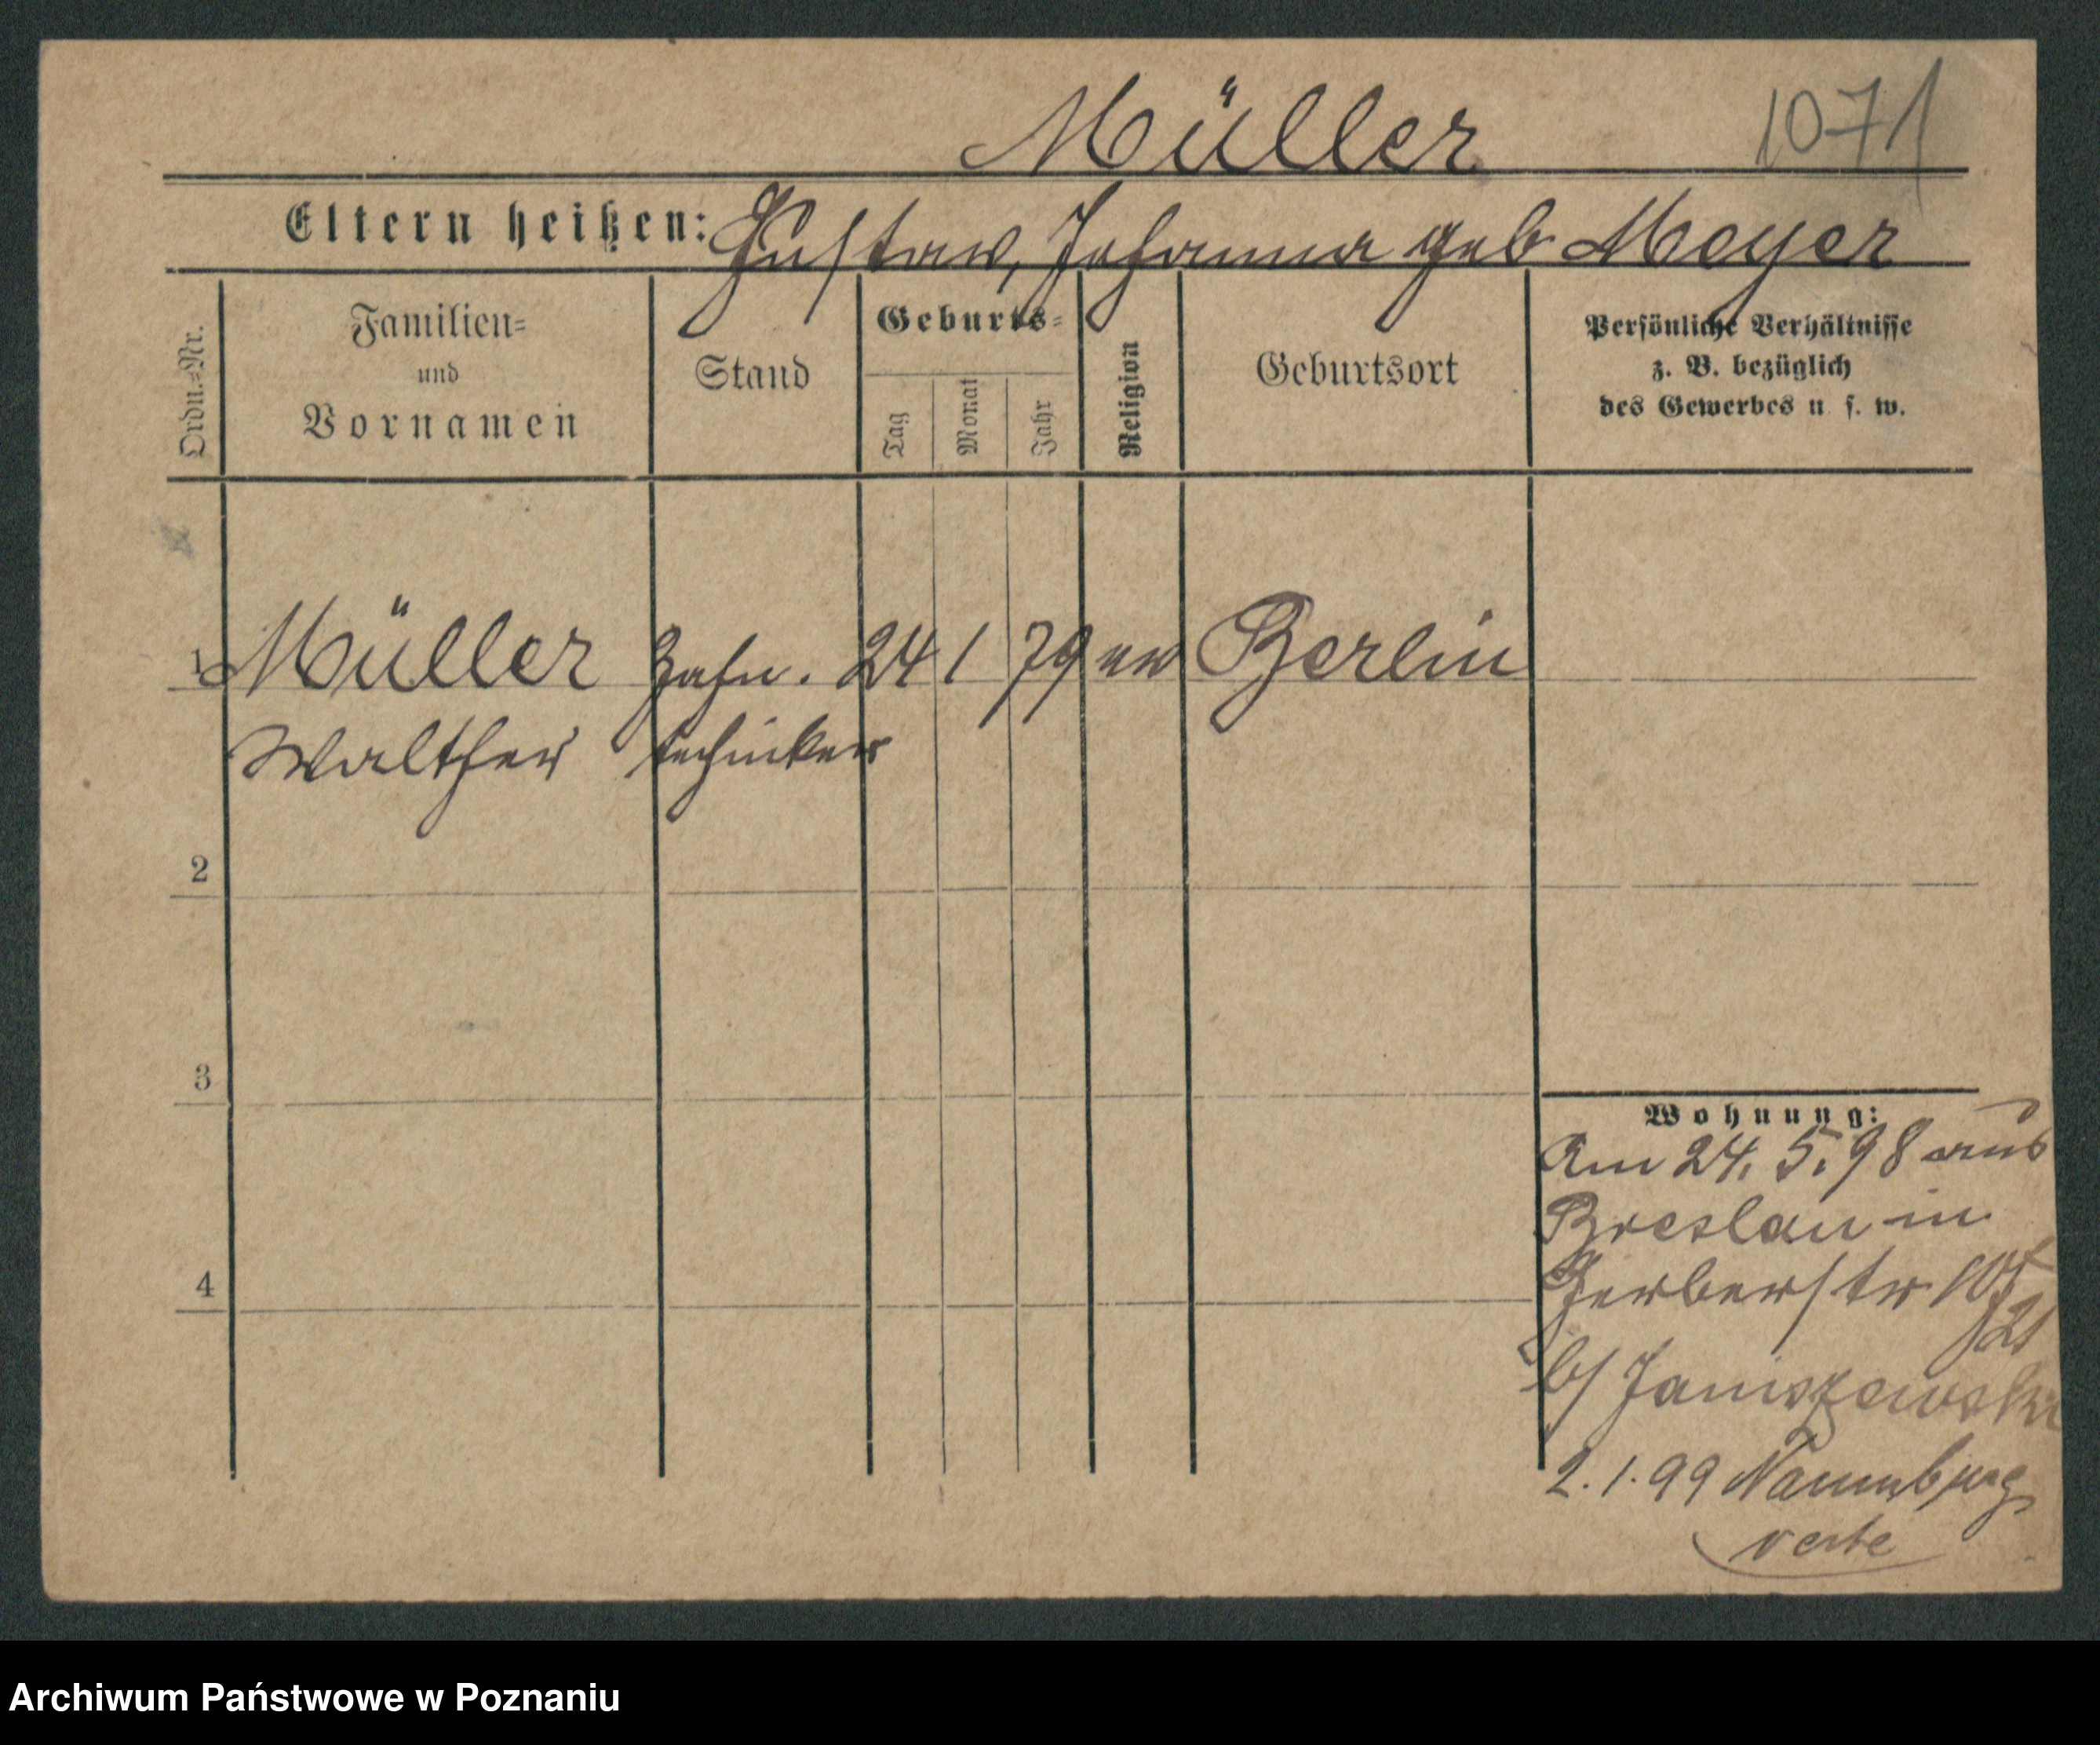 Müller 1071
Eltern heißen: Gustav, Johanna geb Meyer
Ordn.=Nr.
Familien=
und
Vornamen
Stand
Geburts=
Tag
Monat
Jahr
Religion
Geburtsort
Persönliche Verhältnisse
z. B. bezüglich
des Gewerbes u. s. w.
1 Müller Zahn. 24 1 79 ev Berlin
Walther techniker
2
3
4
Wohnung:
Am 24. 5. 98 aus
Breslau in
Gerberstr
b/ Janiszewski
2. 1. 99 Naumburg
verte
Archiwum Państwowe w Poznaniu